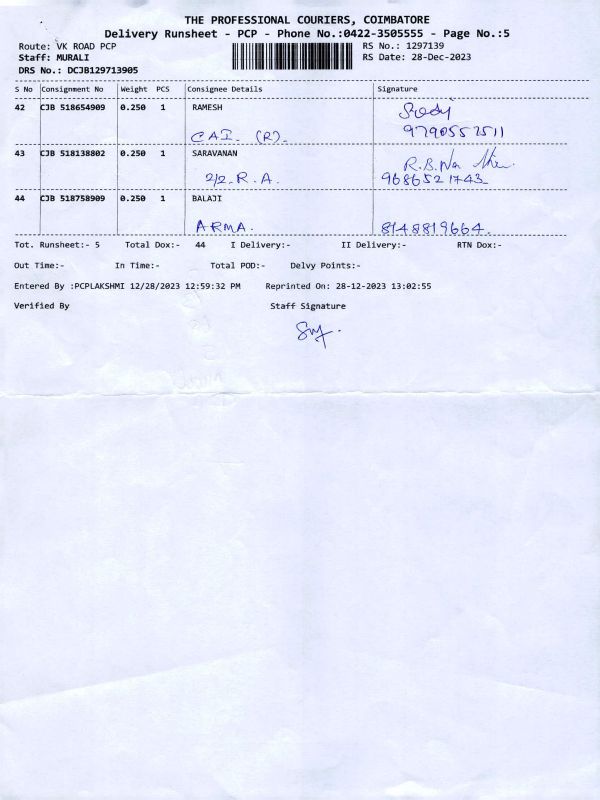 THE PROFESSIONAL COURIERS, COIMBATORE
Delivery Runsheet - PCP - Phone No.:0422-3505555 - Page No.:5
Route: VK ROAD PCP RS No.: 1297139
Staff: MURALI RS Date: 28-Dec-2023
DRS No.: DCJB129713905
S No Consignment No Weight PCS Consignee Details Signature
42 CJB 518654909 0.250 1 RAMESH
CAI. (R). 9790557511
43 CJB 518138802 0.250 1 SARAVANAN R.B.
2/2. R. A. 9686521743
44 CJB 518758909 0.250 1 BALAJI
ARMA. 8148819664.
Tot. Runsheet:- 5 Total Dox:- 44 I Delivery:- II Delivery:- RTN Dox:-
Out Time:- In Time:- Total POD:- Delvy Points:-
Entered By :PCPLAKSHMI 12/28/2023 12:59:32 PM Reprinted On: 28-12-2023 13:02:55
Verified By Staff Signature